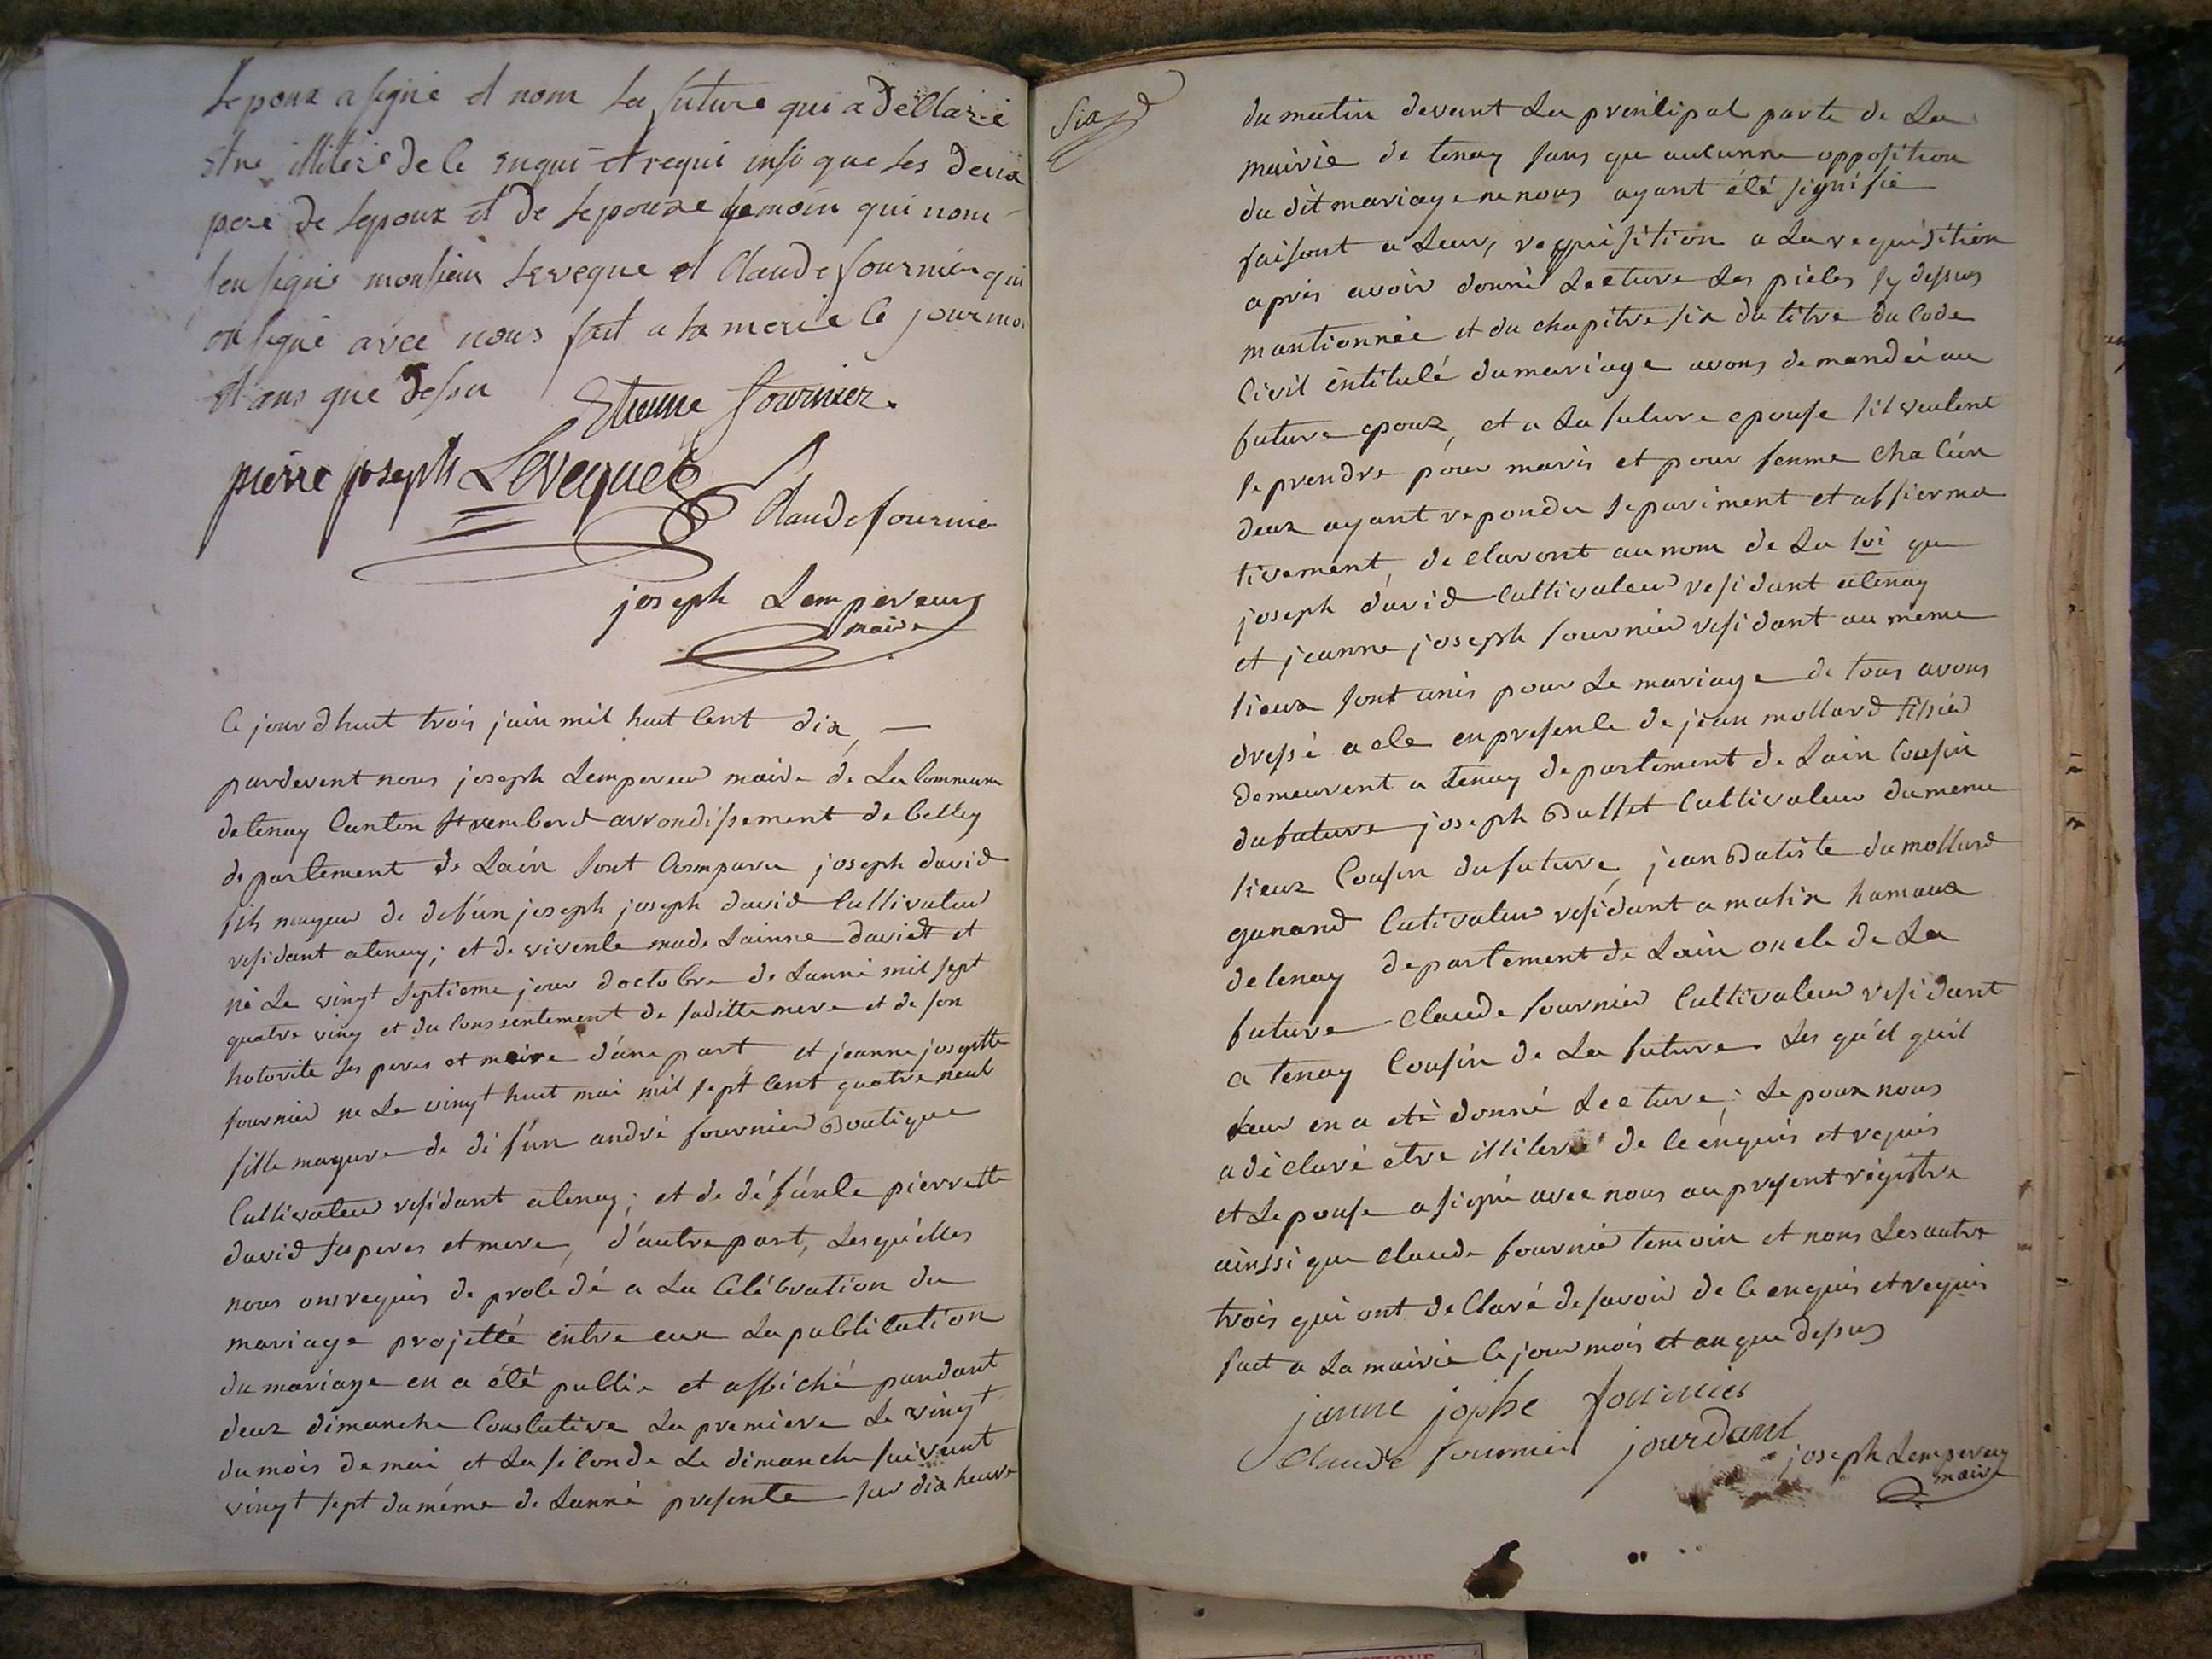 Lepoux a signé et nom La future qui a dellaré
etre illiteré de le enqui et requi insi que Les deux
pere de Lepoux et de Lepouze temoin qui nom
sensigné monsieur Leveque et Claude fournier qui
on signé avec nous fait a La merie le jour moi
et ans que dessu
Etienne fournier.
pierre joseph Leveque
Claude fournier
joseph Lempereur
maire
Ce jourdhuit trois juin mil huit Cent dix
pardevent nous joseph Lempereur maire de La Commune
de tenay Canton St rembert arrondissement de belley
departement de Lain sont Comparu joseph david
fils mageur de defun joseph joseph david Cultivateur
residant atenay; et de vivente made Lainne daviet et
né Le vingt septieme jour doctobre de Lanné mil sept
quatre ving et du Conssentement de saditte mere et de son
hotorite ses peres et meire d'une part et jeanne josephte
fournier ne Le vingt huit mai mil sept Cent quatre neuf
fille mageure de difun andré fournier Boutique
Cultivateur residant atenay; et de défunte pierrette
david ses peres et mere, d'autre part, Lesquélles
nous ons requis de proledé a La Célébration du
mariage projetté entre eux La publication
du mariage en a été publie et affiché pandant
deux dimanche Conslutive La premiere Le vingt
du mois de mai et La seconde Le dimanche suivant
vingt sept du méme de Lanné presente sur dix heure
Six
du matin devant La prinlipal porte de La
mairie de tenay sans que aucunne opposition
du dit mariage ne nous ayant été signifié
faisont a Leur, requisition a La requisition
apres avoir donné Lecture des pieles sy dessus
mantionnée et du chapitre six du titre du Code
Civil éntitulé du mariage avons demandéi au
future epoux, et a La future epouse sil veulent
se prendre pour maris et pour femme Cha Cún
deux ayant repondu separiment et affierma
tivement, declaront au nom de La loi que
joseph david Cultivateur residant atenay
et jeanne joseph fournier residant au meme
lieux sont unis pour Le mariage de tous avons
dressé acle en presenle de jean mollard tissier
demeurent a tenay departement de Lain Cousin
du future joseph Bullet Cultivateur du meme
lieux Cousin du future, jean Batiste dumollard
ganand Cultivateur residant a matix hamaux
de tenay departement de Lain oncle de La
future Claude fournier Cultivateur residant
a tenay Cousin de La future Les qu'el quil
Leur en a eté donné Lecture; Lepoux nous
a déclaré etre illiteré de le énquis et requis
et Lepouse a signé avec nous au present régistre
ainssi que Claude fournier temoin et nons Les autre
trois qui ont dellaré de savoir de le enquis et requis
fait a La mairie le jour mois et an que dessus
janne jophe fournier
Claude fournier jourdant
joseph Lempereur
maire